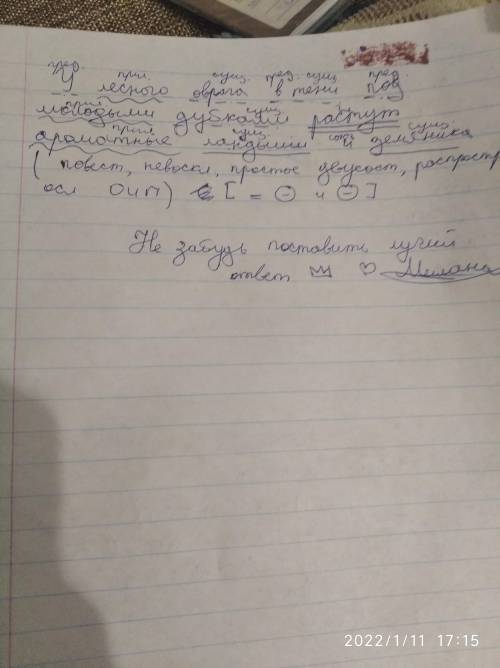 пред. прил. сущ. пред. сущ. пред.
У лесного оврага в тени под
прил. сущ. гл.
молодыми дубками растут
прил. сущ. союз сущ.
ароматные ландыши и земляника
( повест, невоскл, простое двусост, распростр
осл ОЧП) [ = О и О ]
Не забудь поставить лучий
ответ Милана
2022/1/11 17:15